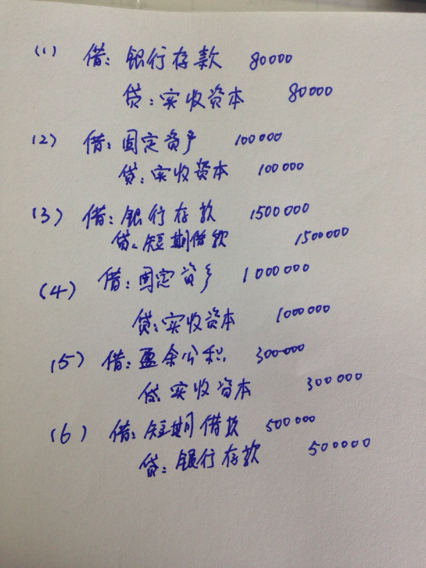 (1) 借: 银行存款 80000
贷: 实收资本 80000
(2) 借: 固定资产 100000
贷: 实收资本 100000
(3) 借: 银行存款 1500000
贷: 短期借款 1500000
(4) 借: 固定资产 1000000
贷: 实收资本 1000000
(5) 借: 盈余公积 300000
贷 实收资本 300000
(6) 借: 短期借款 500000
贷: 银行存款 500000